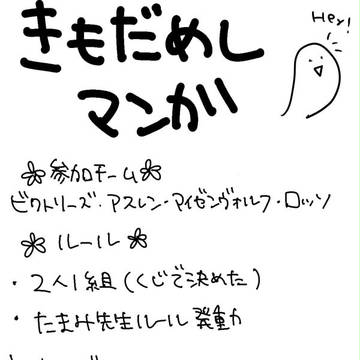 きもだめし
Hey!
マンガ
参加チーム
ビクトリーズ・アスレン・アイゼンヴォルフ・ロッソ
ルール
・2人1組(くじで決めた)
・たまみ先生ルール発動